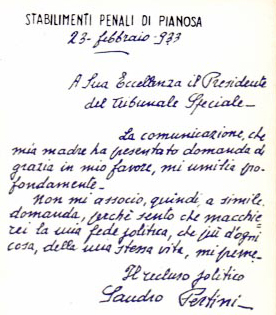 STABILIMENTI PENALI DI PIANOSA
23-febbraio-933
A Sua Eccellenza il Presidente
del Tribunale Speciale-
La comunicazione, che
mia madre ha presentato domanda di
grazia in mio favore, mi umilia pro-
fondamente-
Non mi associo, quindi, a simile
domanda, perchè sento che macchie-
rei la mia fede politica, che più d'ogni
cosa, della mia stessa vita, mi preme-
Il recluso politico
Sandro Pertini-